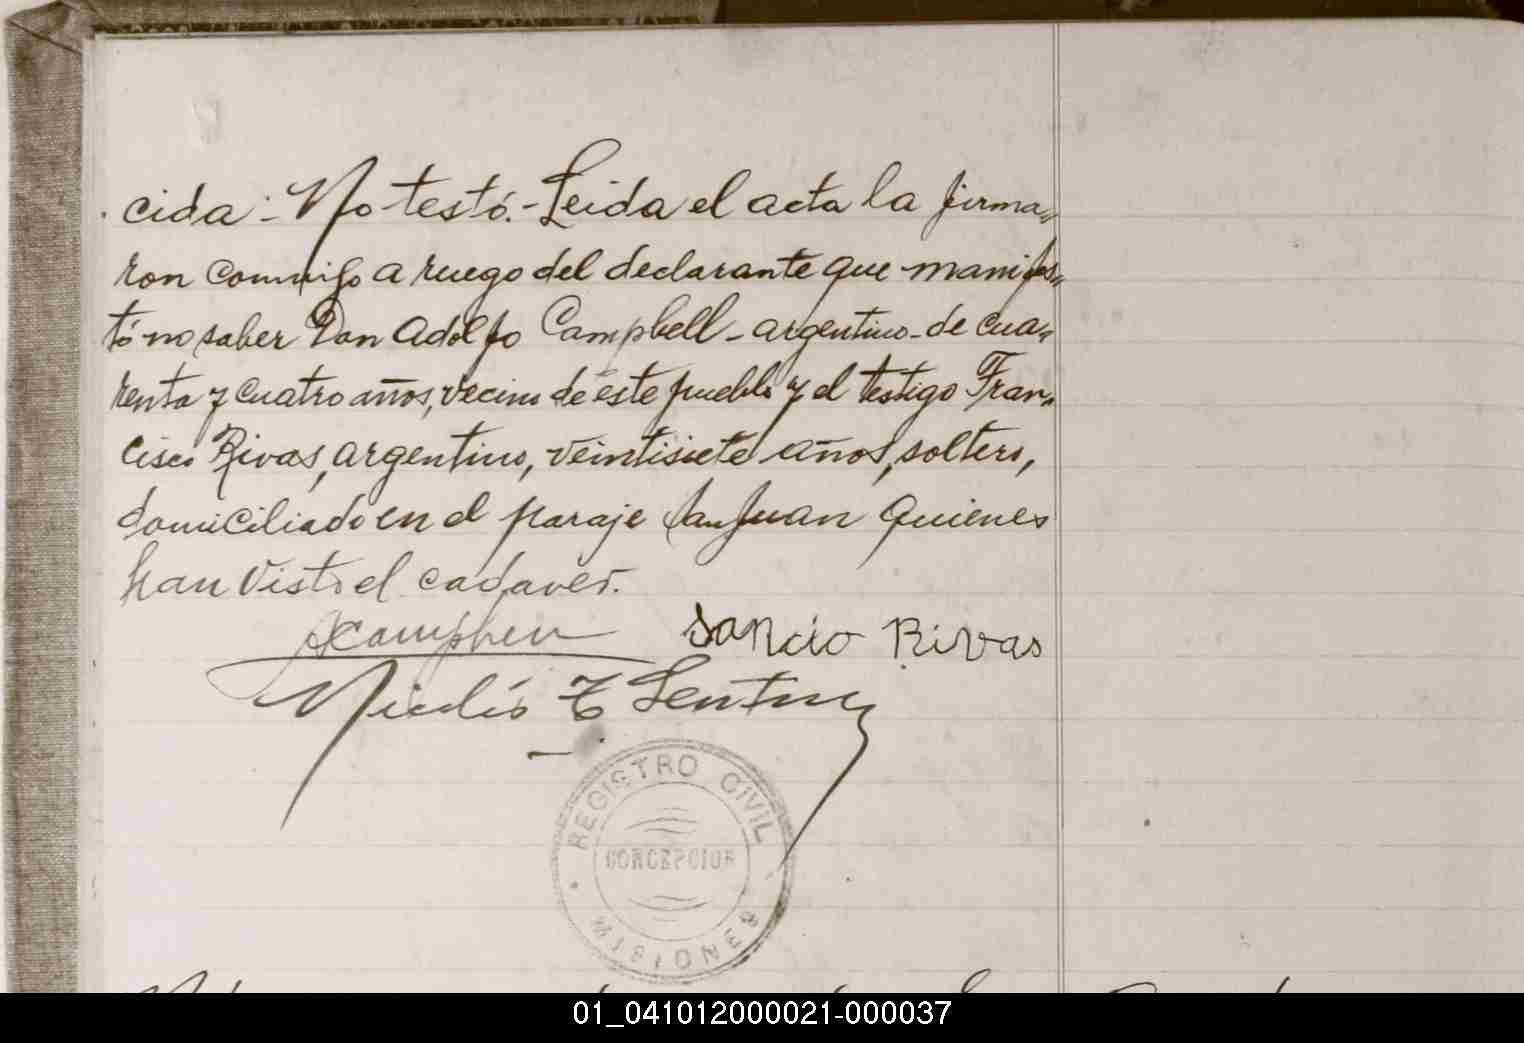 cida. - No testó. - Leida el acta la firma-
ron conmigo a ruego del declarante que manifes-
tó no saber Don Adolfo Campbell - argentino - de cua-
renta y cuatro años, vecino de éste pueblo y el testigo Fran-
cisco Rivas, argentino, veintisiete años, soltero,
domiciliado en el paraje San Juan quienes
han visto el cadaver.
SaNcio Rivas
Nicolás
REGISTRO CIVIL
CONCEPCION
MISIONES
01_041012000021-000037